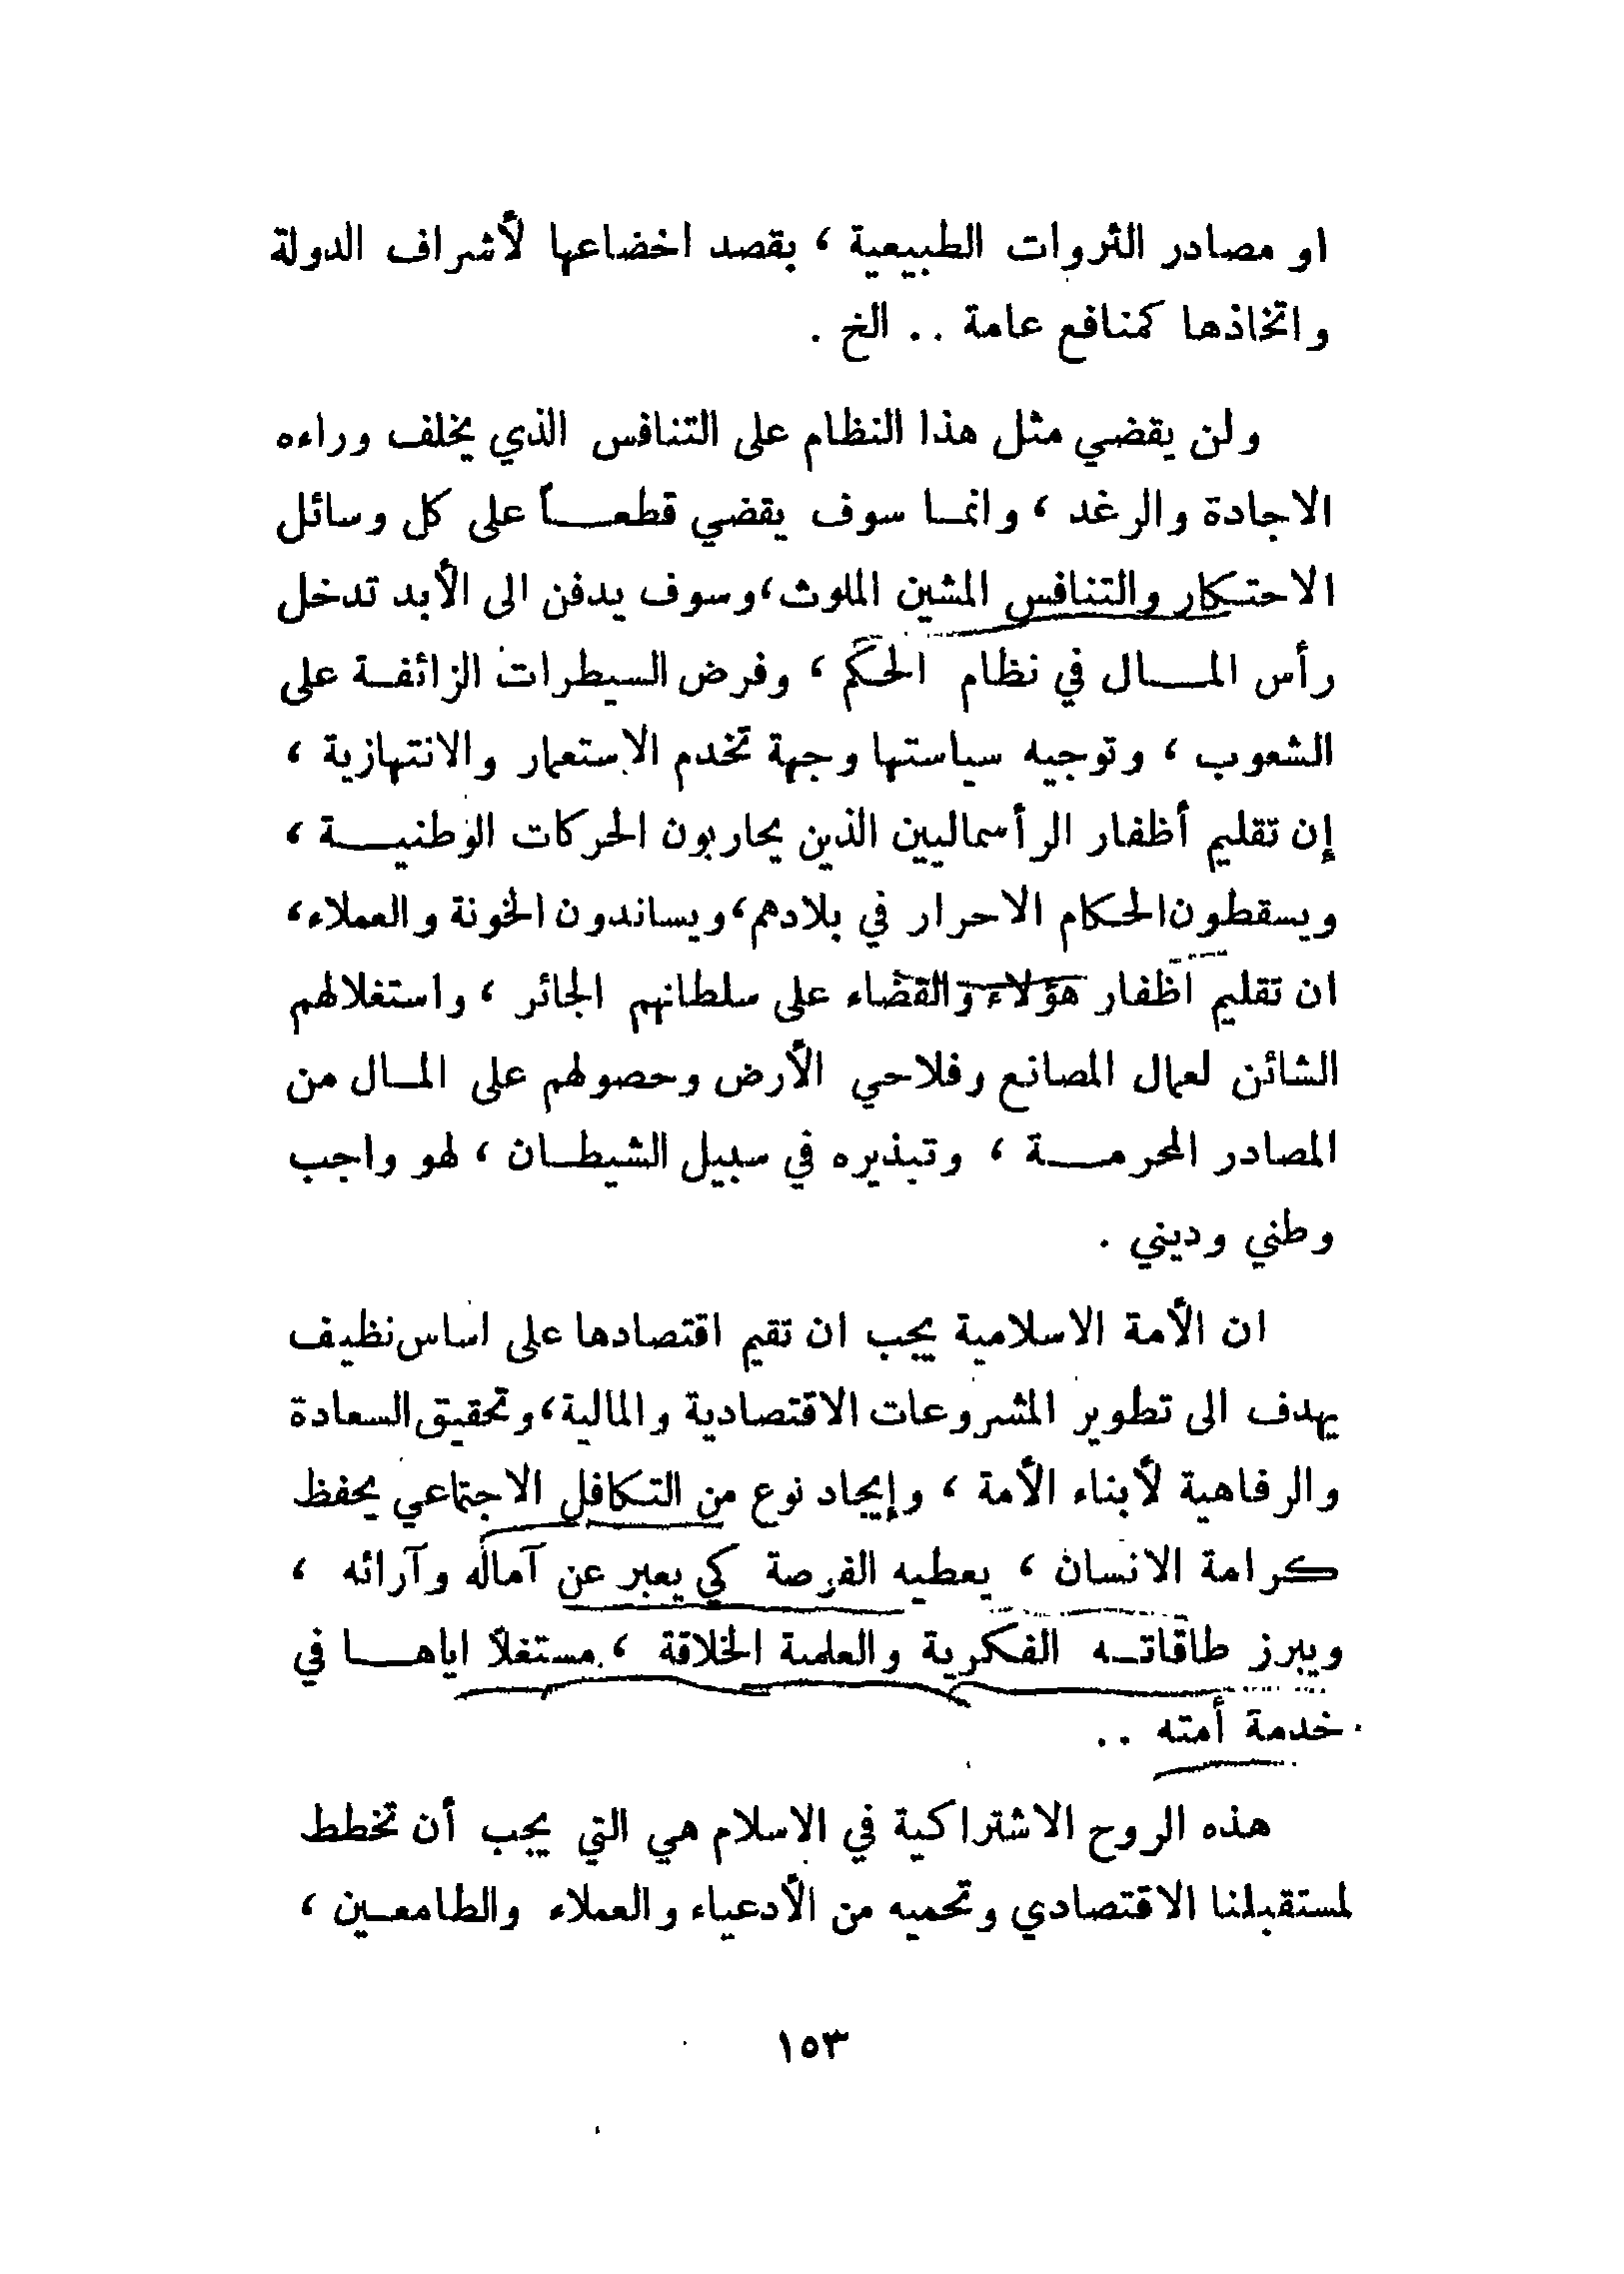 او مصادر الثروات الطبيعية ، بقصد اخضاعها لأشراف الدولة
واتخاذها كمنافع عامة .. الخ .
ولن يقضي مثل هذا النظام على التنافس الذي يخلف وراءه
الاجادة والرغد ، وانما سوف يقضي قطعاً على كل وسائل
الاحتكار والتنافس المشين الملوث ، وسوف يدفن الى الأبد تدخل
رأس المال في نظام الحكم ، وفرض السيطرات الزائفة على
الشعوب ، وتوجيه سياستها وجهة تخدم الاستعمار والانتهازية ،
إن تقليم أظفار الرأسماليين الذين يحاربون الحركات الوطنية ،
ويسقطون الحكام الاحرار في بلادهم ، ويساندون الخونة والعملاء ،
ان تقليم اظفار هؤلاء والقضاء على سلطانهم الجائر ، واستغلالهم
الشائن لعمال المصانع وفلاحي الأرض وحصولهم على المال من
المصادر المحرمة ، وتبذيره في سبيل الشيطان ، لهو واجب
وطني وديني .
ان الأمة الاسلامية يجب ان تقيم اقتصادها على اساس نظيف
يهدف الى تطوير المشروعات الاقتصادية والمالية ، وتحقيق السعادة
والرفاهية لأبناء الأمة ، وإيجاد نوع من التكافل الاجتماعي يحفظ
كرامة الانسان ، يعطيه الفرصة كي يعبر عن آماله وآرائه ،
ويبرز طاقاته الفكرية والعلمية الخلاقة ، مستغلاً اياها في
خدمة أمته ..
هذه الروح الاشتراكية في الاسلام هي التي يجب أن تخطط
لمستقبلنا الاقتصادي وتحميه من الأدعياء والعملاء والطامعين ،
١٥٣